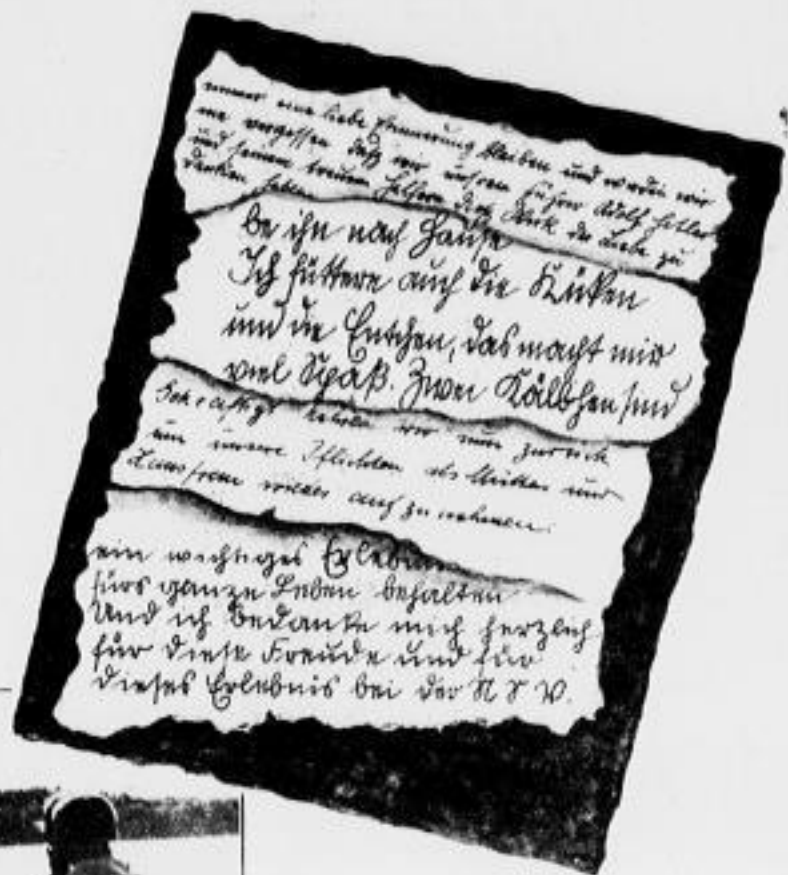 immer eine liebe Erinnerung bleiben und werden wir
nie vergessen daß wir unsren Führer Adolf Hitler
und seinen treuen Helfern dies Werk der Liebe zu
danken haben.
be ihn nach Hause
Ich füttere auch die Küken
und die Entchen, das macht mir
viel Spaß. Zwei Kälbchen sind
kehren wir nun zurück
um unsere Pflichten als Mutter und
Hausfrau wieder auf zu nehmen.
ein wichtiges Erlebnis
fürs ganze Leben behalten
Und ich bedanke mich herzlich
für diese Freude und für
dieses Erlebnis bei der N S V.